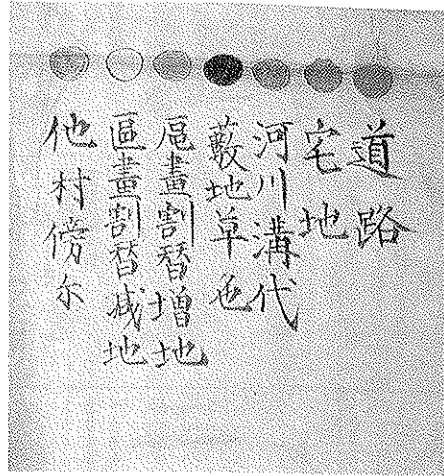 道路
宅地
河川溝代
藪地草也
區畫割替増地
區畫割替减地
他村傍尔